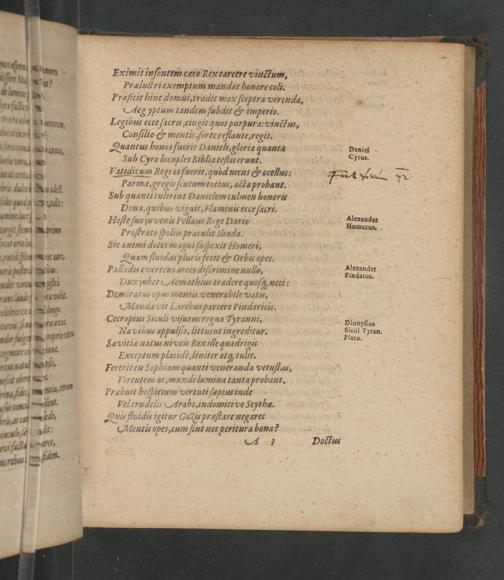 Eximit insontem cæco Rex carcere vinctum,
Prælustri exemptum mandat honore coli.
Præficit hinc domui, tradit mox sceptra verenda,
Aegyptum tandem subdit & imperio.
Legibus ecce sacris, cingit quos purpura: vinctus,
Consilio & mentis, sorte reflante, regit.
Quantus honos fuerit Danieli, gloria quanta
Sub Cyro locuples Biblia testis erunt.
Daniel
Cyrus.
Vatidicum Regi os fuerit, quòd mens & ocellus:
Parma, gregis scutum totius, acta probant.
Sub quanti tulerint Danielem culmen honoris
Dona, quibus viguit, Flaminis ecce sacri.
Hoste suo juvenis Pellæus Rege Dario
Prostrato spoliis prætulit Iliada.
Alexander
Homerus.
Sic animi dotes magni suspexit Homeri,
Quam fluidas pluris fecit & Orbis opes.
Palladis evertens arces discrimine nullo,
Dux jubet Aemathius tradere quosq; neci:
Alexander
Pindarus.
Demiratus opus mentis venerabile vatis,
Mandavit Laribus parcere Pindaricis.
Cecropius Siculi visurus regna Tyranni,
Navibus appulsis, littus ut ingreditur.
Dionysius
Sicil. Tyran.
Plato.
Sævitia natus niveis Rex ille quadrigis
Exceptum placidè, leniter atq; tulit.
Fecerit en Sophiam quanti veneranda vetustas,
Virtutem ac, mundi lumina tanta probant.
Præbuit hospitium virtuti sæpius inde
Vel crudelis Arabs, indomitive Scythæ.
Quis fluidis igitur Gazis præstare negaret
Mentis opes, cum sint nec peritura bona?
A 3
Doctus